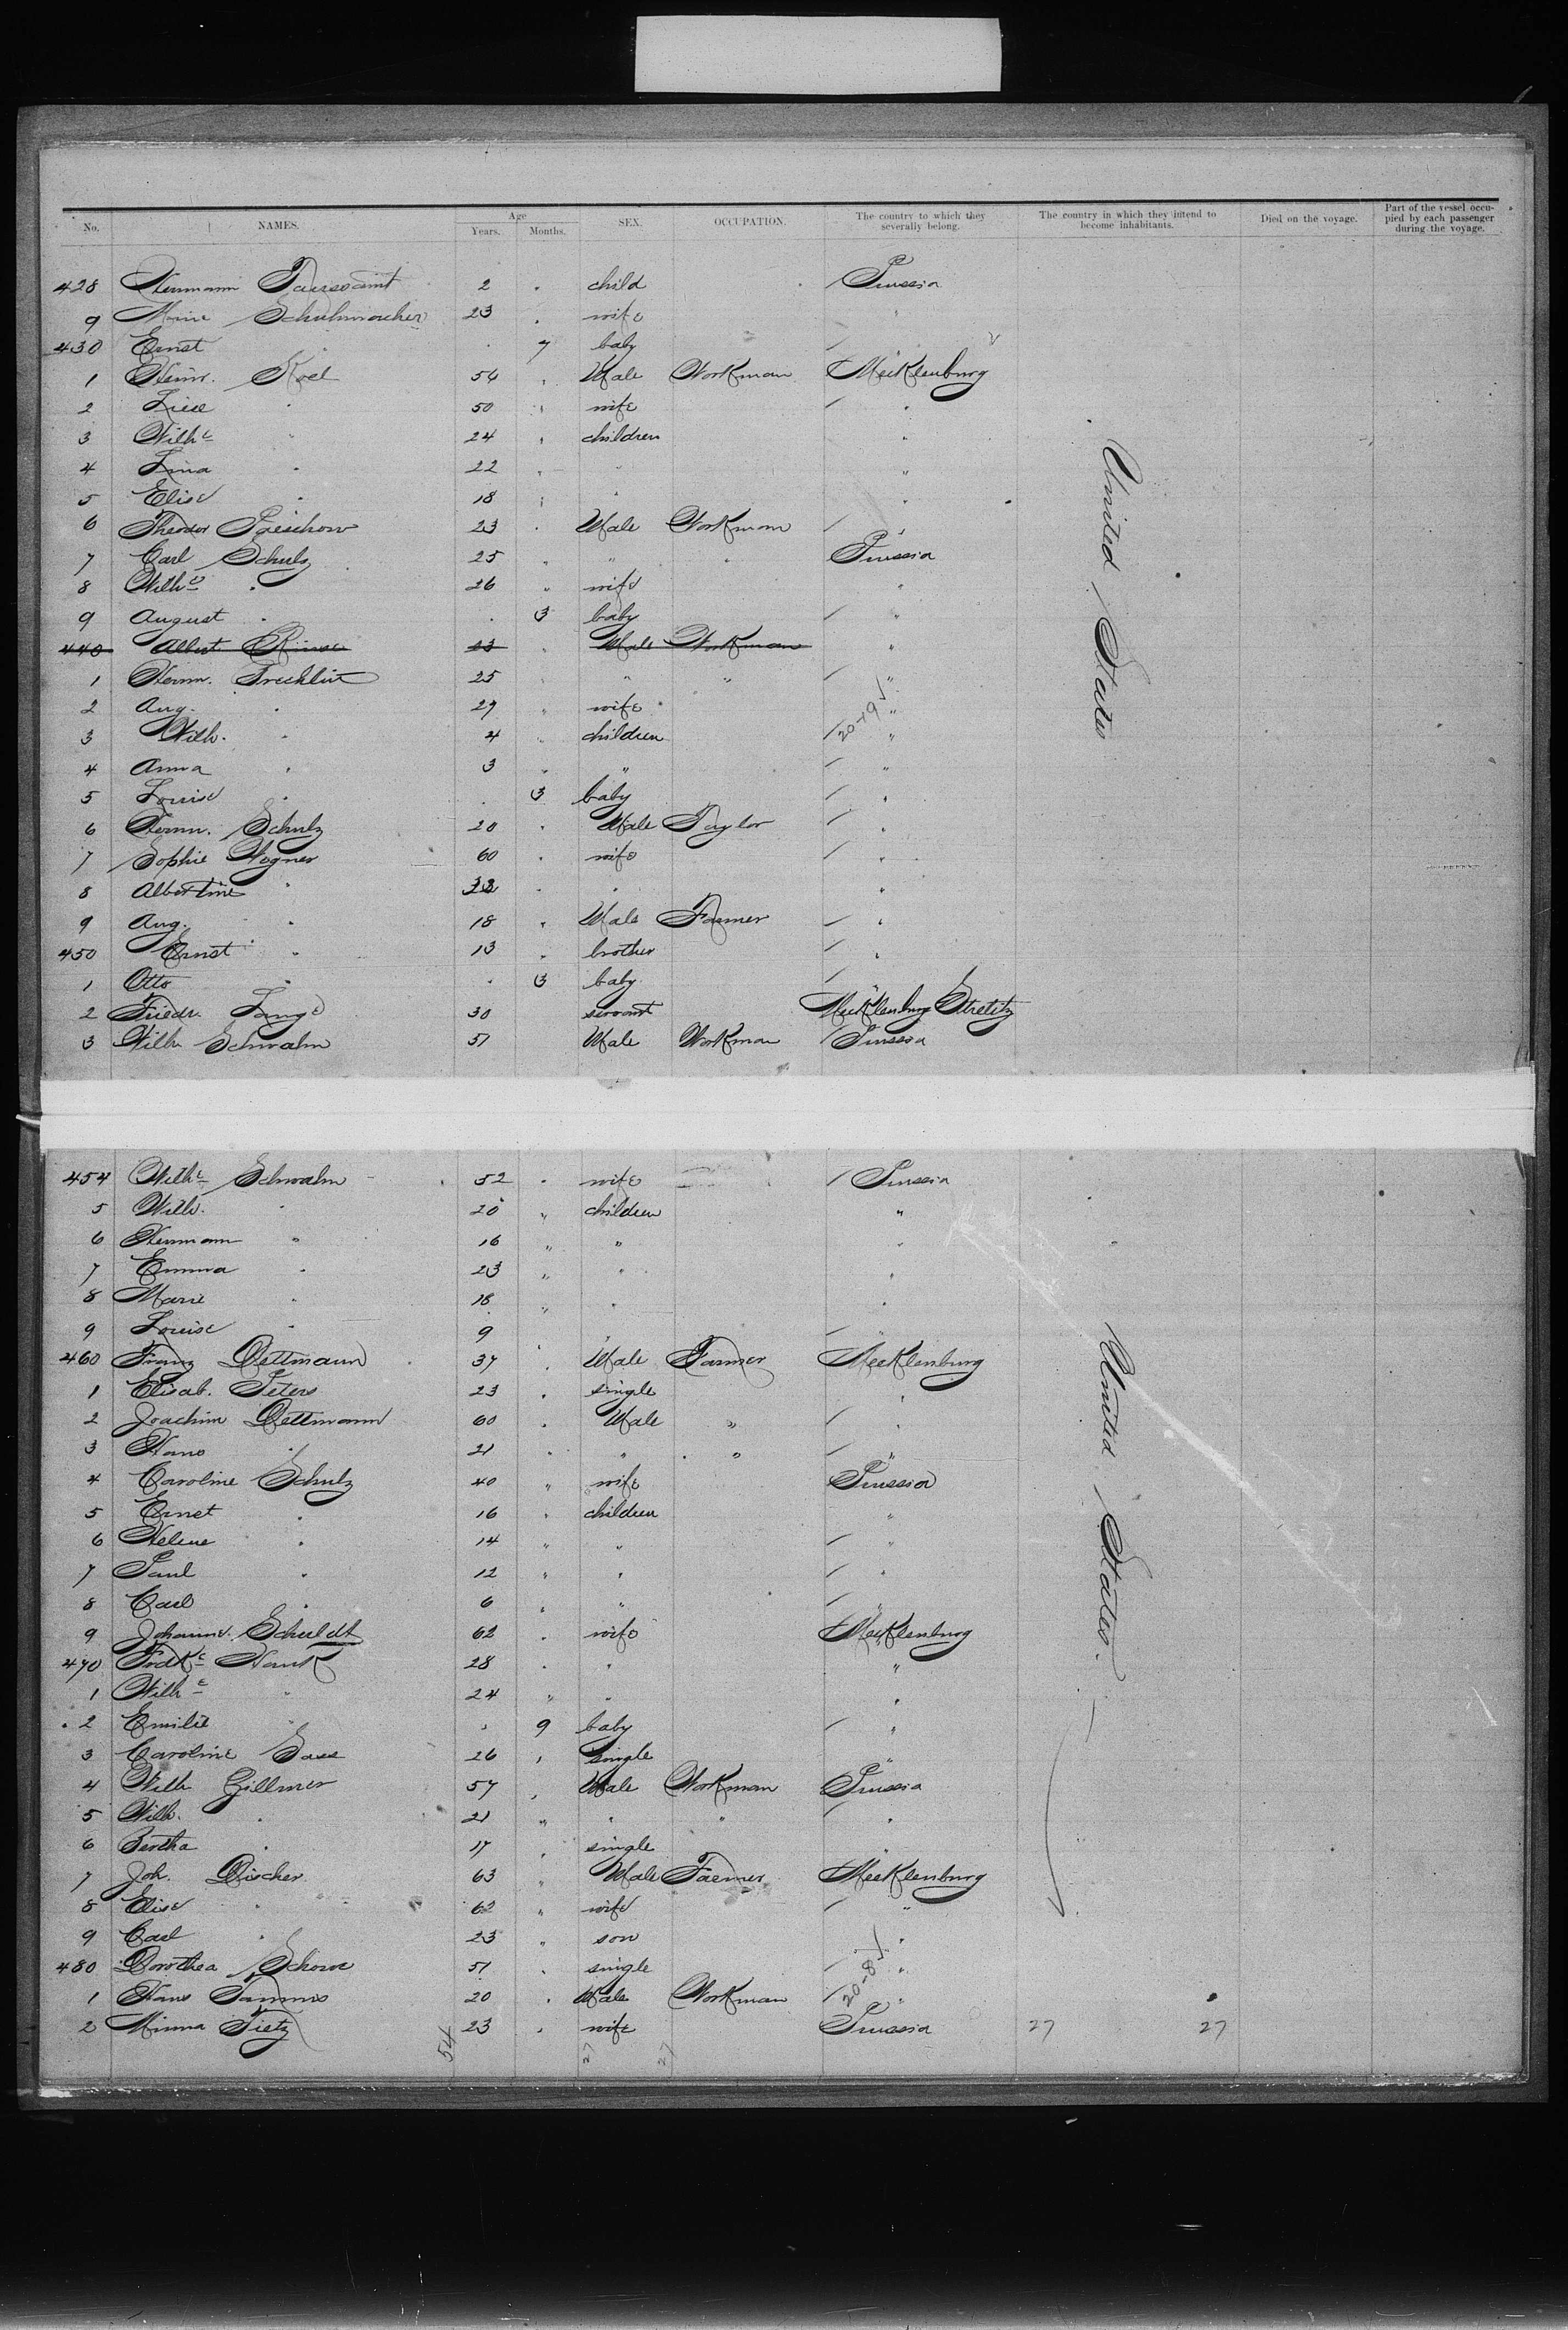 No. NAMES. Age Years. Months. SEX. OCCUPATION. The country to which they severally belong. The country in which they intend to become inhabitants. Died on the voyage. Part of the vessel occupied by each passenger during the voyage.
428 Hermann Toussaint 2 " child Prussia
9 Marie Schuhmacher 23 " wife "
430 Ernst " 7 baby
1 Heinr. Koel 54 " Male Workman Mecklenburg
2 Liese " 50 " wife "
3 Wilhe " 24 " children "
4 Lina " 22 " " "
5 Elise " 18 " " "
6 Theodor Päschow 23 " Male Workmann "
7 Carl Schulz 25 " " " Prussia
8 Wilhe " 26 " wife "
9 August " " 3 baby "
440 Albert 23 " Male Workman "
1 Herm. Trecklin 25 " " " "
2 Aug. " 27 " wife "
3 Wilh. " 4 " children "
4 Anna " 3 " " "
5 Louise " " 3 baby "
6 Herm. Schulz 20 " Male Taylor "
7 Sophie Wegner 60 " wife "
8 Albertine " 32 " " "
9 Aug. " 18 " Male Farmer "
450 Ernst " 13 " brother "
1 Otto " " 3 baby "
2 Friedr. Lange 30 servant Mecklenburg Stretitz
3 Wilh Schwalm 51 Male Workman Prussia
United States
454 Wilhe Schwalm 52 " wife Prussia
5 Wilh. " 20 " children "
6 Hermann " 16 " " "
7 Emma " 23 " " "
8 Marie " 18 " " "
9 Louise " 9 " " "
460 Franz Dettmann 37 " Male Farmer Mecklenburg
1 Elisab. Peters 23 " single "
2 Joachim Dettmann 60 " Male " "
3 Hans " 21 " " " "
4 Caroline Schulz 40 " wife Prussia
5 Ernst " 16 " children "
6 Helene " 14 " " "
7 Paul " 12 " " "
8 Carl " 6 " " "
9 Johanne. Schuldt 62 " wife Mecklenburg
470 Fredke Hauk 28 " " "
1 Wilhe " 24 " " "
2 Emilie " " 9 baby "
3 Caroline Sass 26 " single "
4 Wilh Gillmer 57 " Male Workman Prussia
5 Wilh. " 21 " " " "
6 Bertha " 17 " single "
7 Joh. Discher 63 " Male Farmer Mecklenburg
8 Elise " 62 " wife "
9 Carl " 23 " son "
480 Dorothea Schow 51 " single "
1 Hans Tamms 20 " Male Workman "
2 Minna Tietz 23 " wife Prussia 27 27
United States.
54 27 27